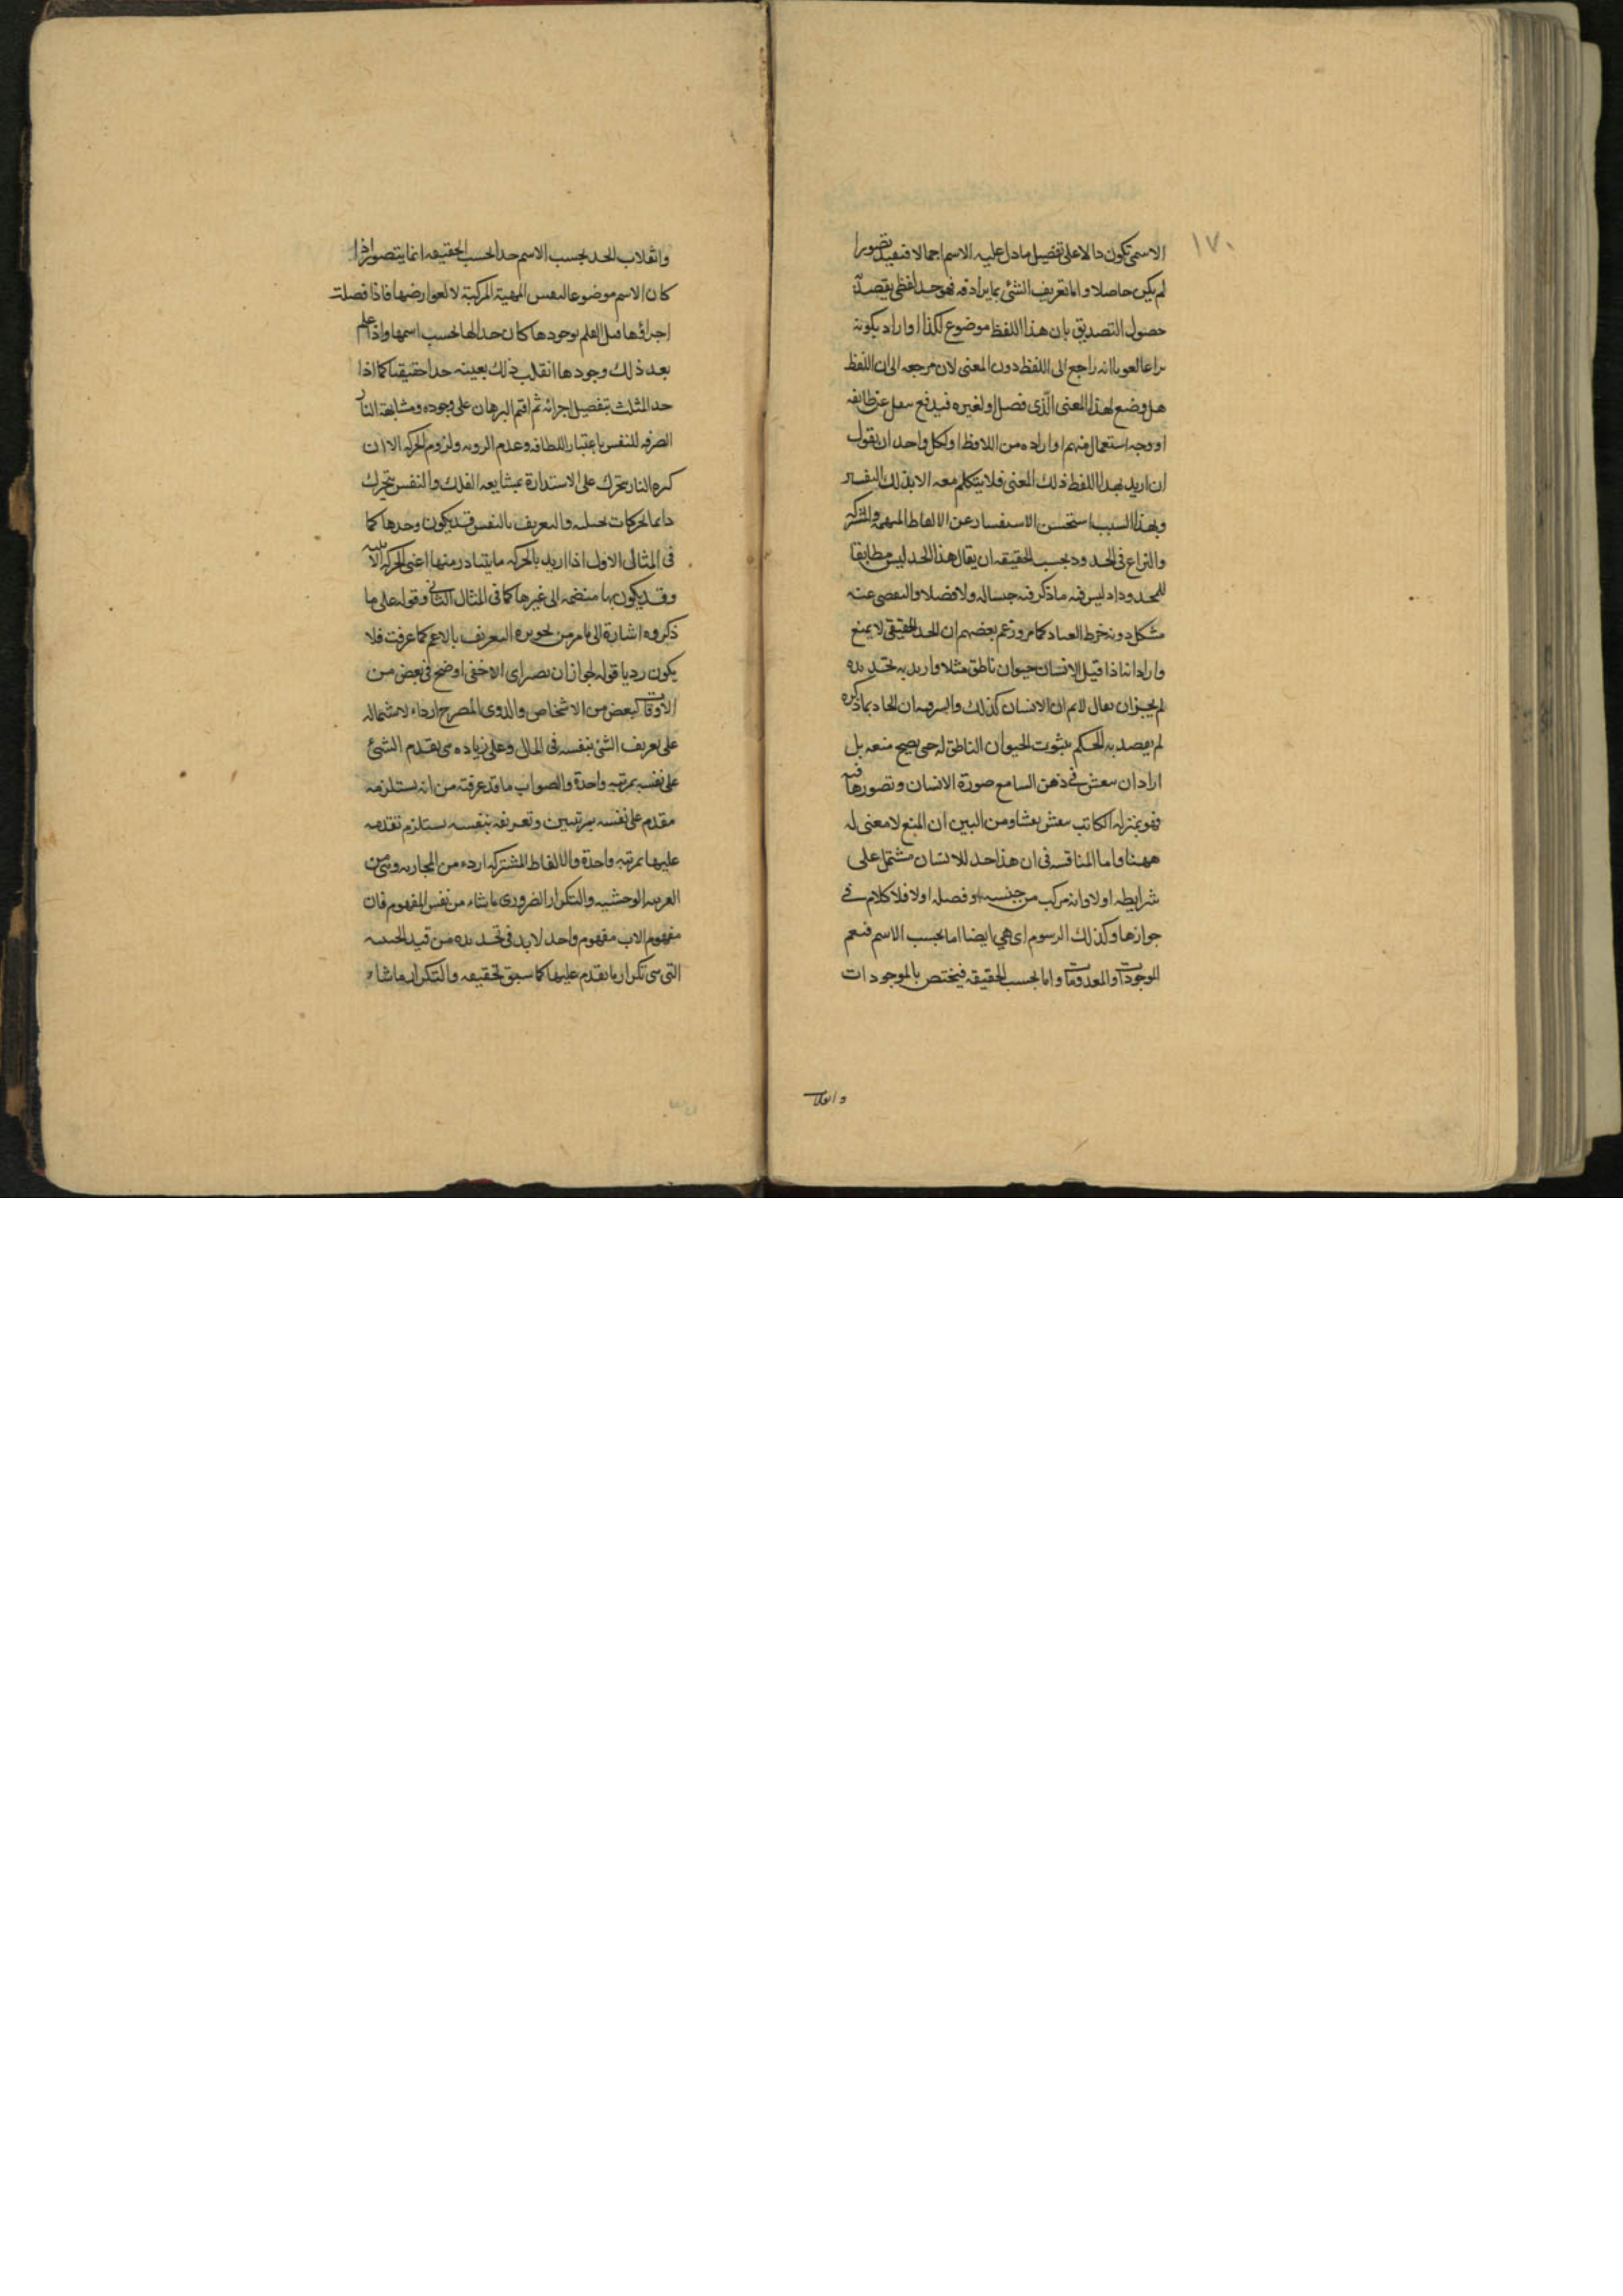 ١٧٠
الاسمي تكون دالا على تفصيل ما دل عليه الاسم اجمالا فيفيد تصورا
لم يكن حاصلا واما تعريف الشئ بما يرادفه فهو حد لفظي يقصد به
حصول التصديق بان هذا اللفظ موضوع لكذا اواراد بكونه
نزاعا لغويا انه راجع الى اللفظ دون المعنى لان مرجعه الى ان اللفظ
هل وضع لهذا المعنى الذى فصل او لغيره فيدفع بنقل عن
او وجه استعمال منهم او اراده من اللافظ اولكل واحد ان يقول
ان اريد بهذا اللفظ ذلك المعنى فلا يتكلم معه الا بذلك
وبهذا السبب استحسن الاستفسار عن الالفاظ المبهمة والمشتركه
والنزاع فى الحدود بحسب الحقيقه ان يقال هذا الحد ليس مطابقا
للمحدود اذ ليس فيه ما ذكر فيه جنسا له ولا فصلا والتفصى عنه
مشكل دونه خرط القتاد كما مر وزعم بعضهم ان الحد الحقيقى لا يمنع
واراد انا اذا قيل الانسان حيوان ناطق مثلا واريد به تحديده
لم يجز ان يقال لا نم ان الانسان كذلك والسر فيه ان الحاد بما ذكره
لم يقصد به الحكم بثبوت الحيوان الناطق له حى يصح منعه بل
اراد ان ينقش فى ذهن السامع صورة الانسان وتصورها فيه
فهو بمنزله الكاتب ينقش نقشا ومن البين ان المنع لا معنى له
ههنا واما المناقشه فى ان هذا حد للانسان مشتمل على
شرايطه اولا وانه مركب من جنسه او فصله اولا فلا كلام فى
جوازها وكذلك الرسوم اى هى ايضا اما بحسب الاسم فيعم
الموجودات والمعدومات واما بحسب الحقيقه فيختص بالموجودات
وانقلاب
وانقلاب الحد بحسب الاسم حدا بحسب الحقيقه انما يتصور اذا
كان الاسم موضوعا لنفس المهية المركبة لا لعوارضها فاذا فصلت
اجزاؤها قبل العلم بوجودها كان حدا لها بحسب اسمها واذا علم
بعد ذلك وجودها انقلب ذلك بعينه حدا حقيقيا كما اذا
حد المثلث بتفصيل اجزائه ثم اقيم البرهان على وجوده ومشابهة النار
الصرفه للنفس باعتبار اللطافه وعدم الرويه ولزوم الحركه الا ان
كره النار تتحرك على الاستدارة بمشايعه الفلك والنفس تتحرك
دايما بحركات والتعريف بالنفس قد يكون وحدها كما
فى المثال الاول اذا اريد بالحركه ما يتبادر منها اعنى الحركه الاينيه
وقد يكون بها منضمه الى غيرها كما فى المثال الثانى وقوله على ما
ذكروه اشارة الى ما مر من تجويزه التعريف بالاعم كما عرفت فلا
يكون رديا قوله لجواز ان يصير اى الاخفى اوضح فى بعض من
الاوقات لبعض من الاشخاص والدورى المصرح ارداء لاشتماله
على تعريف الشئ بنفسه فى المال وعلى زياده هى تقدم الشئ
على نفسه بمرتبه واحدة والصواب ما قد عرفته من انه يستلزم
تقدمه على نفسه بمرتبتين وتعريفه بنفسه يستلزم تقدمه
عليها بمرتبه واحدة والالفاظ المشتركه ارداء من المجازيه وهى من
الغريبه الوحشيه والتكرار الضرورى ما ينشاء من نفس المفهوم فان
مفهوم الاب مفهوم واحد لابد فى تحديده من قيد الحيثيه
التى هى تكرار ما تقدم عليها كما سبق تحقيقه والتكرار ما ينشاء